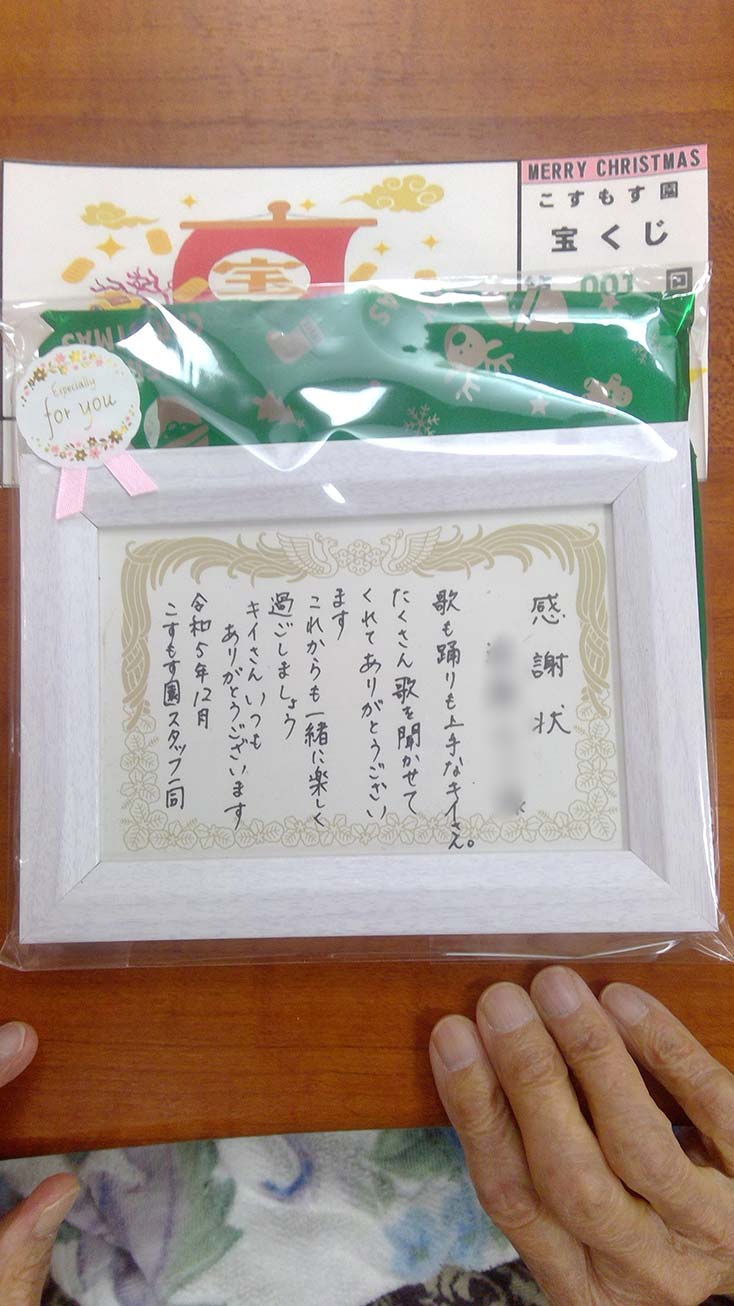 MERRY CHRISTMAS
こすもす園
宝くじ
宝
001
CHRISTMAS
Especially
for you
感謝状
歌も踊りも上手なキイさん。
たくさん歌を聞かせて
くれてありがとうござい
ます
これからも一緒に楽しく
過ごしましょう
キイさんいつも
ありがとうございます
令和5年12月
こすもす園スタッフ一同